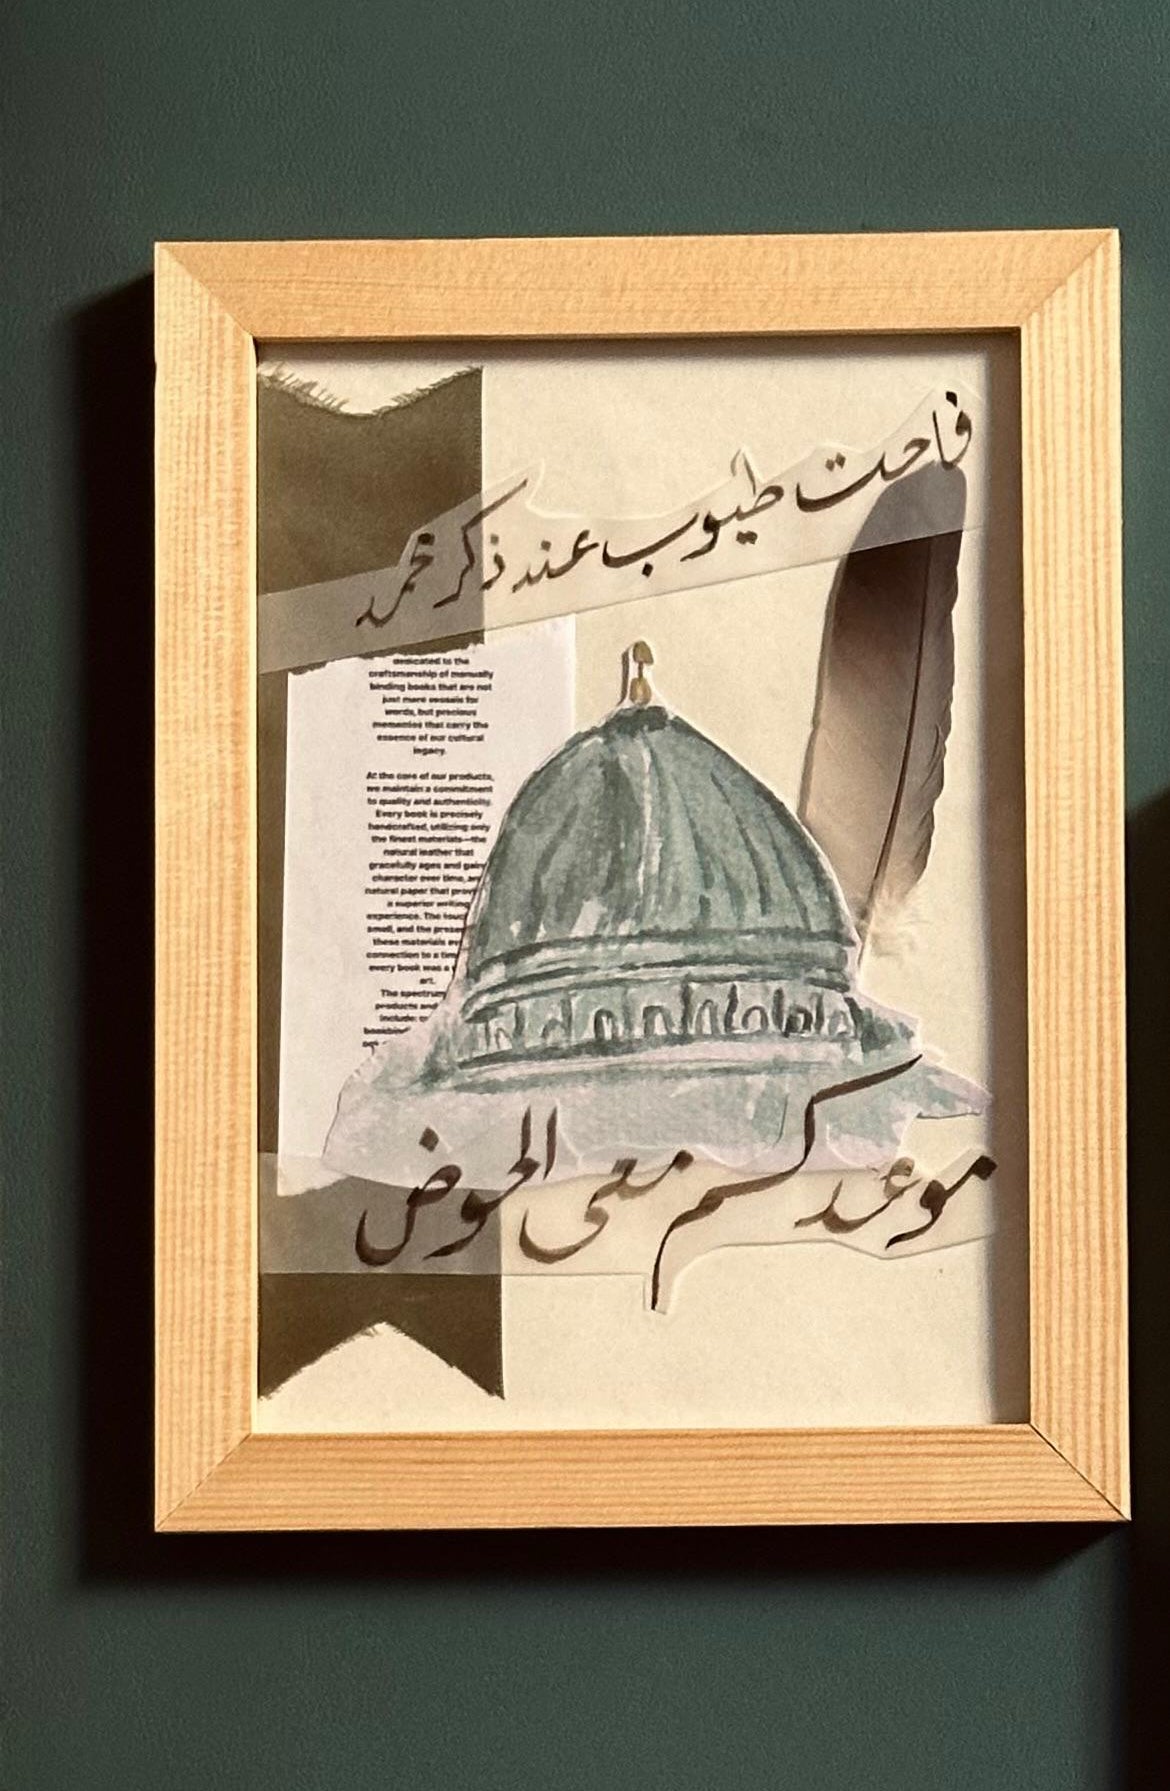 فاحت طيوب عند ذكر محمد
dedicated to the
craftsmanship of manually
binding books that are not
just mere vessels for
words, but precious
mementos that carry the
essence of our cultural
legacy.
At the core of our products,
we maintain a commitment
to quality and authenticity.
Every book is precisely
handcrafted, utilizing only
the finest materials—the
natural leather that
gracefully ages and gains
character over time, and
natural paper that prov
a superior writing
experience. The touc
smell, and the prese
these materials ev
connection to a tim
every book was a
art.
The spectrum
products and
include:
موعدكم معي الحوض